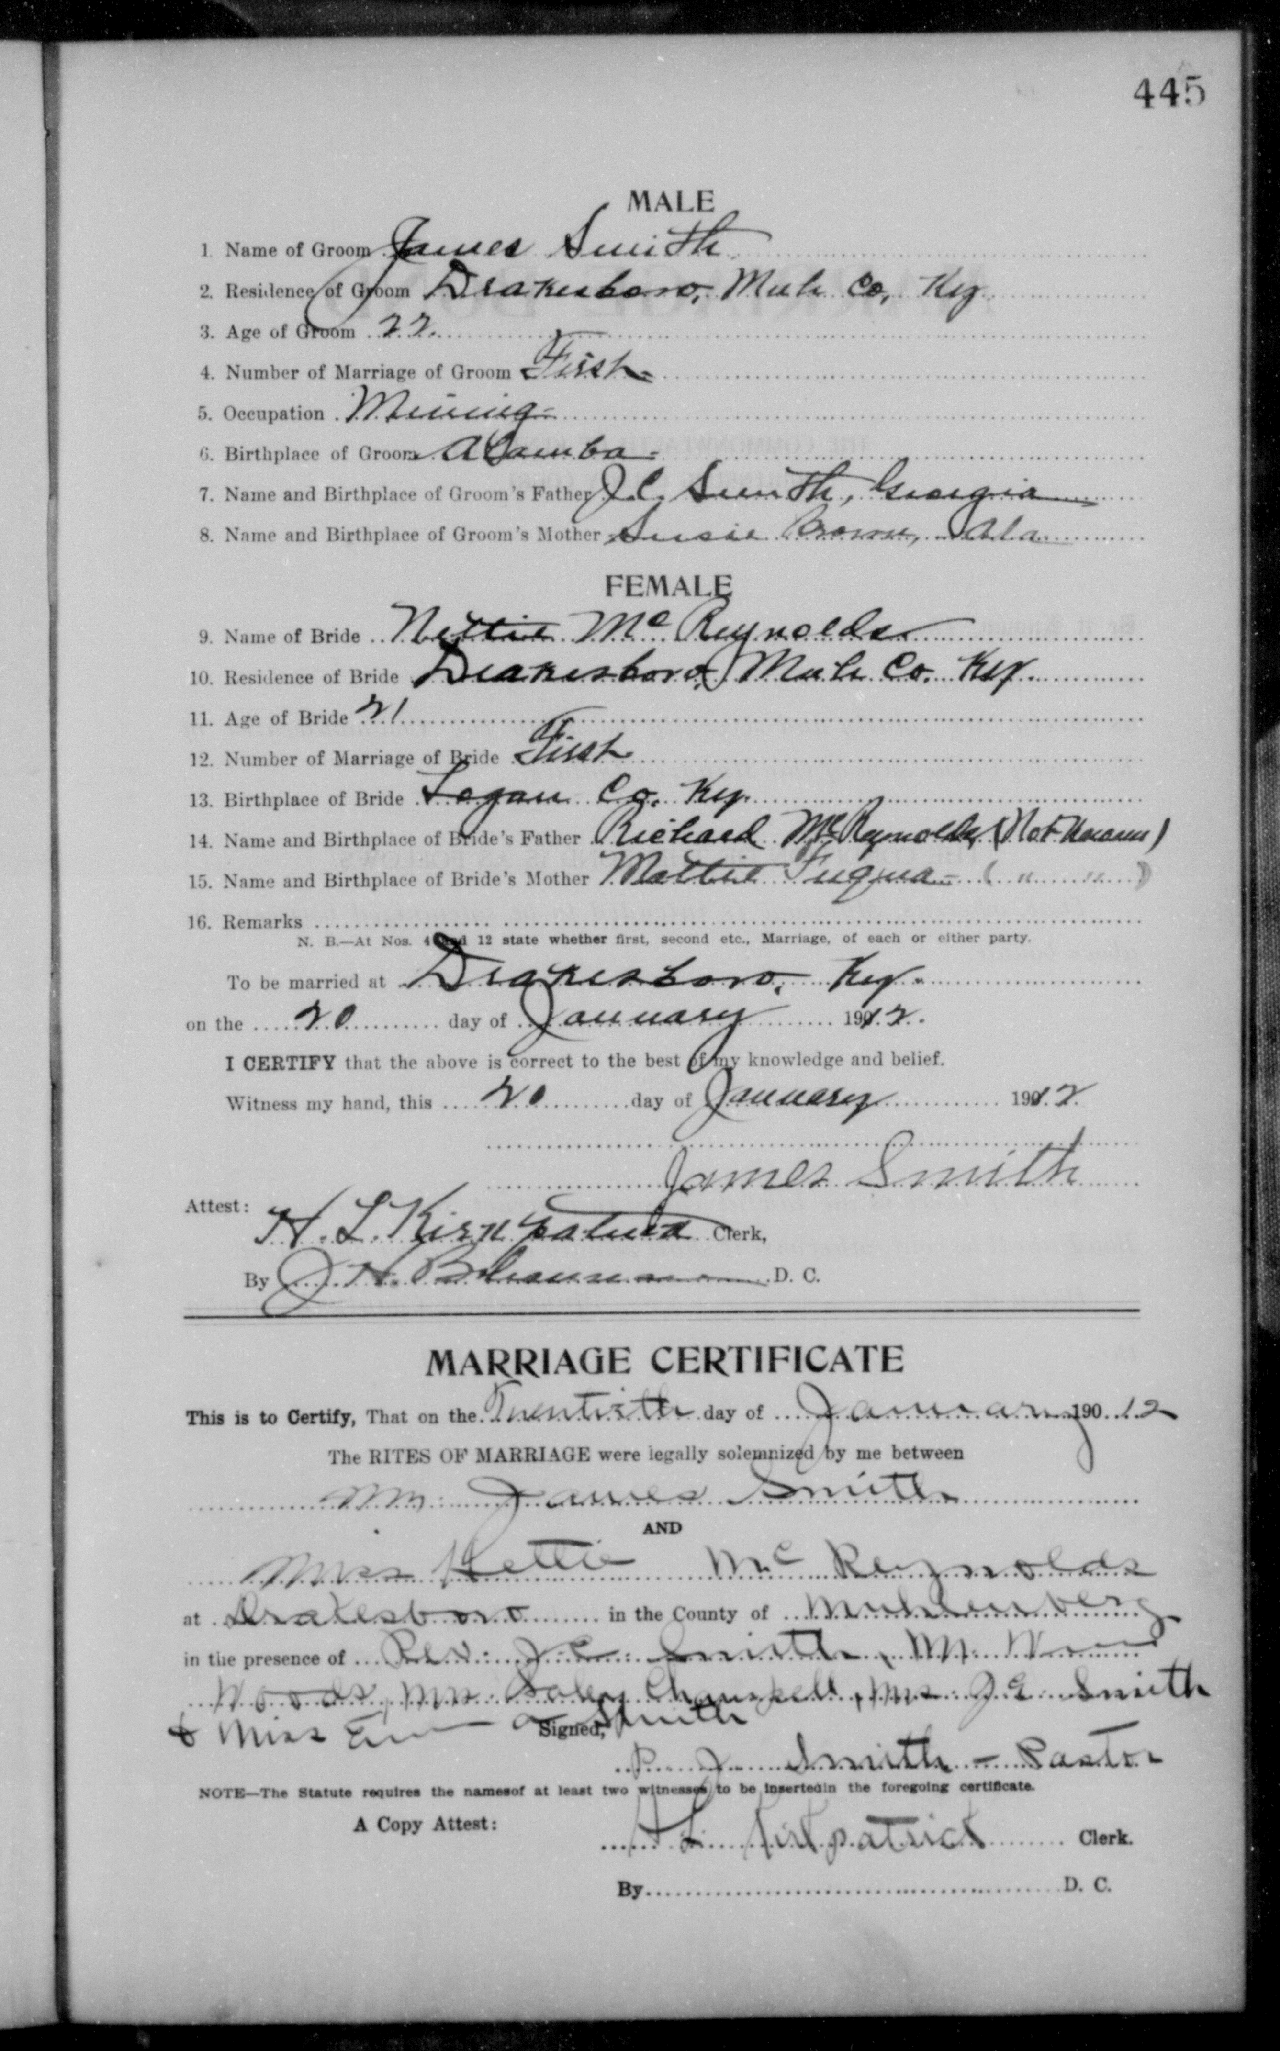 445
MALE
1. Name of Groom James Smith
2. Residence of Groom Drakesboro, Muh Co, Ky
3. Age of Groom 22.
4. Number of Marriage of Groom First
5. Occupation Mining
6. Birthplace of Groom Alamba
7. Name and Birthplace of Groom's Father J.C. Smith, Georgia
8. Name and Birthplace of Groom's Mother Susie Brown, Ala
FEMALE
9. Name of Bride Nettie McReynolds
10. Residence of Bride Drakesboro, Muh Co. Ky.
11. Age of Bride 21
12. Number of Marriage of Bride First
13. Birthplace of Bride Logan Co. Ky.
14. Name and Birthplace of Bride's Father Richard McReynolds (Not Known)
15. Name and Birthplace of Bride's Mother Mattie Fuqua - ( " " )
16. Remarks
N. B.—At Nos. 4 and 12 state whether first, second etc., Marriage, of each or either party.
To be married at Drakesboro, Ky.
on the 20 day of January 1912.
I CERTIFY that the above is correct to the best of my knowledge and belief.
Witness my hand, this 20 day of January 1912
James Smith
Attest:
H. L. Kirkpatrick Clerk,
By J H. D. C.
MARRIAGE CERTIFICATE
This is to Certify, That on the Twentieth day of January 190 12
The RITES OF MARRIAGE were legally solemnized by me between
Mr. James Smith
AND
Miss Nettie McReynolds
at Drakesboro in the County of Muhlenberg
in the presence of Rev. J.C. Smith, Mr.
Woods, Mrs. , Mrs. J.C. Smith
& Miss Smith
Signed,
P. J. Smith - Pastor
NOTE—The Statute requires the namesof at least two witnesses to be insertedin the foregoing certificate.
A Copy Attest:
H L. Kirkpatrick Clerk.
By D. C.